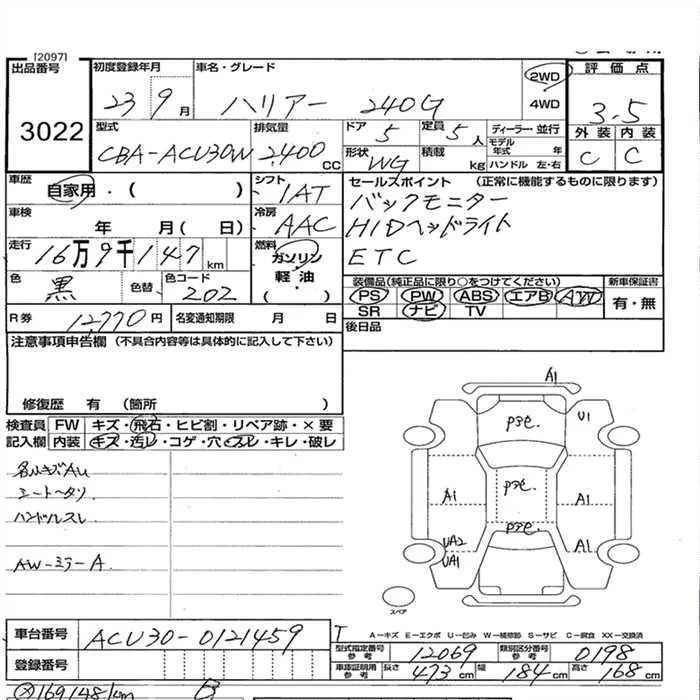 [2097]
出品番号 3022
初度登録年月 23 9月
車名・グレード ハリアー 240G
2WD
4WD
評価点 3.5
外装 内装
C C
型式 CBA-ACU30W
排気量 2,400 CC
ドア 5
定員 5人
ディーラー・並行
モデル年式 年
形状 WG
積載 kg
ハンドル 左・右
車歴 自家用・( )
シフト 1AT
車検 年 月( 日)
冷房 AAC
走行 16万9千147km
燃料 ガソリン
軽・油
( )
色 黒
色替
色コード 202
R券 12,770円
名変通知期限 月 日
セールスポイント (正常に機能するものに限ります)
バックモニター
HIDヘッドライト
ETC
装備品(純正品に限り○をつけてください)
PS PW ABS エアB AW
SR ナビ TV
新車保証書
有・無
後日品
注意事項申告欄 (不具合内容等は具体的に記入して下さい)
修復歴 有 (箇所 )
検査員 FW キズ・飛石・ヒビ割・リペア跡・×要
記入欄 内装 キズ・汚レ・コゲ・穴・スレ・キレ・破レ
シートヘタリ
ハンドルスレ
AW-ミラーA
A1
P3e.
U1
A1
P3e.
A1
P3e.
UA2
UA1
A1
スペア
車台番号 ACU30-0121459
登録番号
A-キズ E-エクボ U-凹み W-補修跡 S-サビ C-腐食 XX-交換済
型式指定番号 参考 12069
類別区分番号 参考 0198
車庫証明用 参考 長さ 473cm 幅 184cm 高さ 168cm
169148km